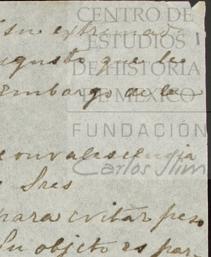 CENTRO DE
ESTUDIOS
DE HISTORIA
DE MÉXICO
FUNDACIÓN
Carlos Slim
su
que le
embargo de la
convalescencia
Sres
para evitar
Su objeto es par-